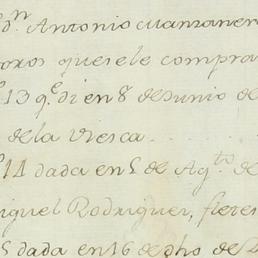 dn. Antonio Manzaner
toros que se le compra
13 qe. di en 8 de Junio de
de la Viesca
14 dada en 5 de Agto. de
iguel Rodriguez, fieres
5 dada en 16 de dho de